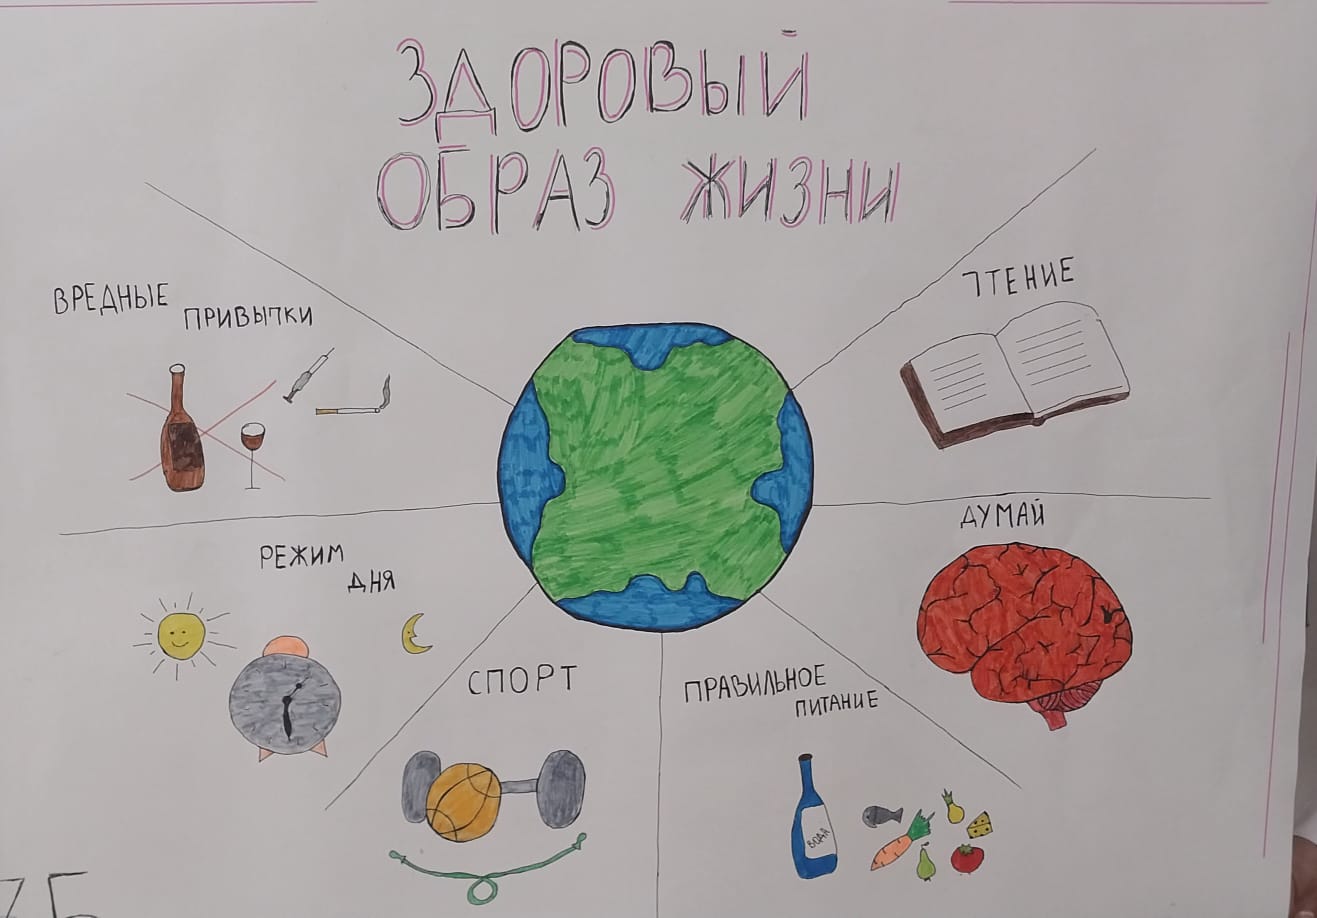 ЗДОРОВЫЙ
ОБРАЗ ЖИЗНИ
ВРЕДНЫЕ
ПРИВЫЧКИ
ЧТЕНИЕ
РЕЖИМ
ДНЯ
ДУМАЙ
СПОРТ
ПРАВИЛЬНОЕ
ПИТАНИЕ
ВОДА